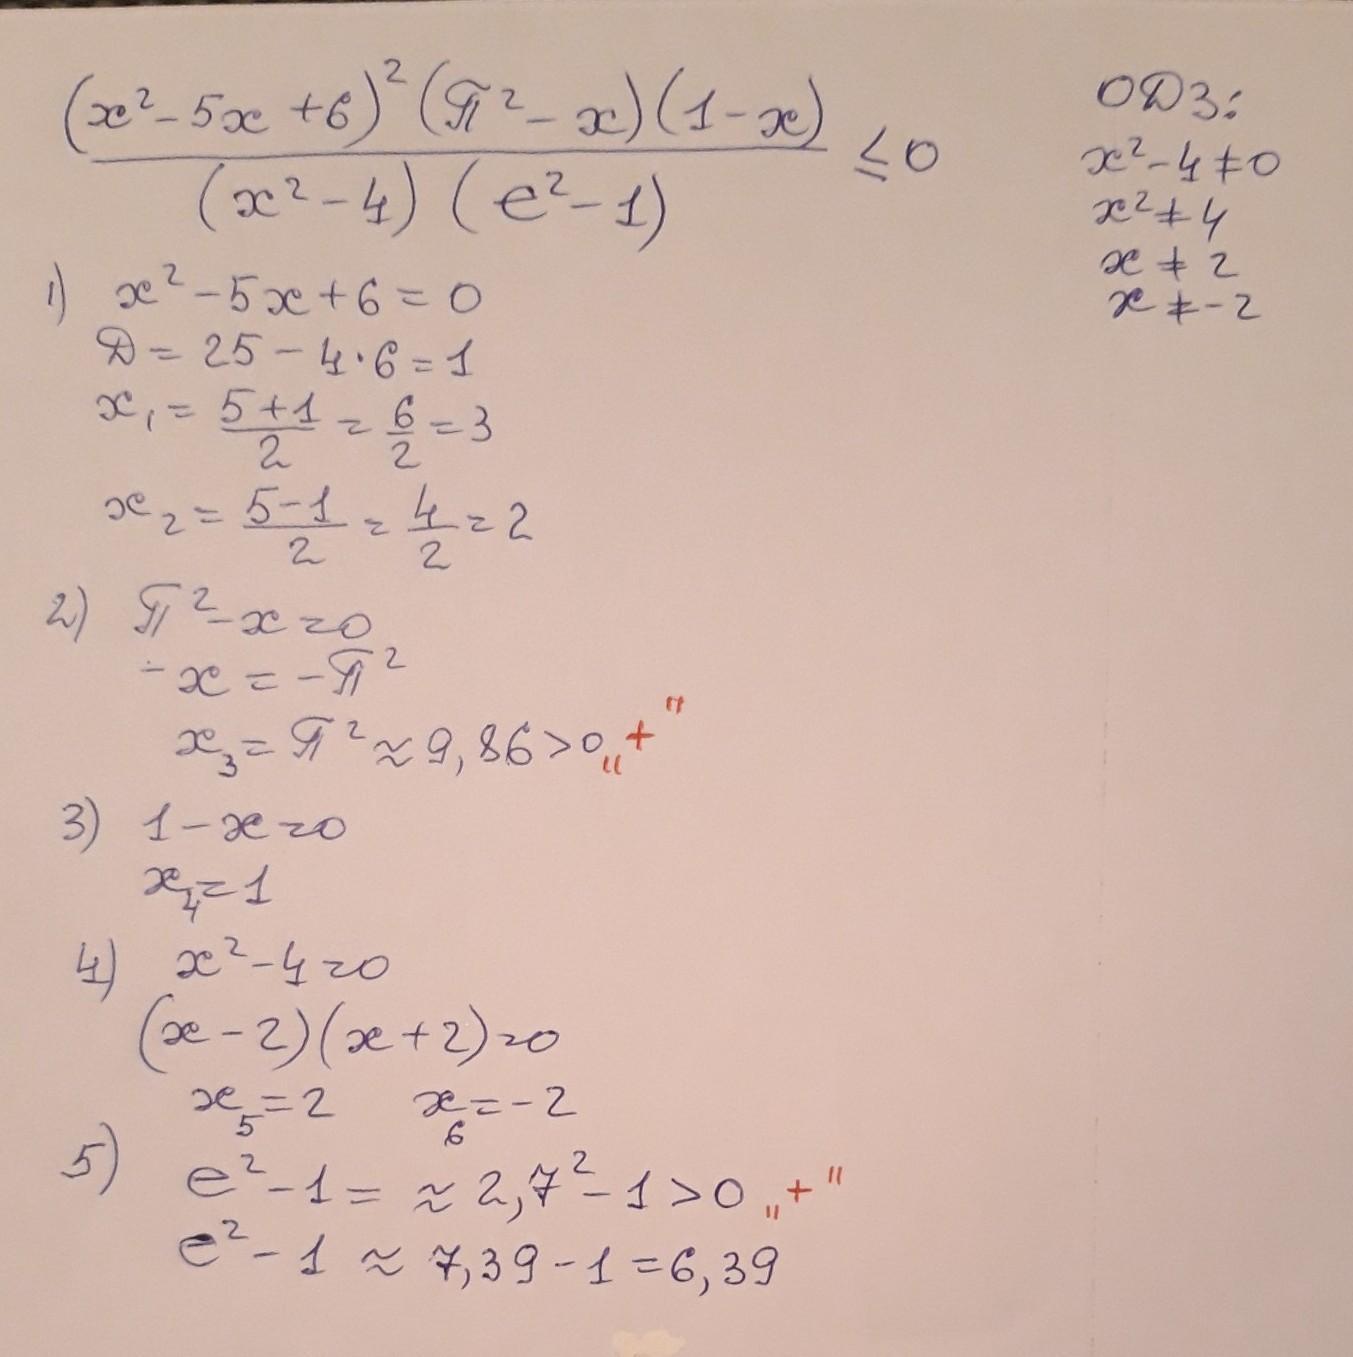 (x² - 5x + 6)² (π² - x)(1 - x)
/ (x² - 4) (e² - 1) ≤ 0
ОДЗ:
x² - 4 ≠ 0
x² ≠ 4
x ≠ 2
x ≠ -2
1) x² - 5x + 6 = 0
D = 25 - 4·6 = 1
x₁ = (5+1)/2 = 6/2 = 3
x₂ = (5-1)/2 = 4/2 = 2
2) π² - x = 0
- x = - π²
x₃ = π² ≈ 9,86 > 0 „+"
3) 1 - x = 0
x₄ = 1
4) x² - 4 = 0
(x - 2)(x + 2) = 0
x₅ = 2 x₆ = -2
5) e² - 1 = ≈ 2,7² - 1 > 0 „+"
e² - 1 ≈ 7,39 - 1 = 6,39